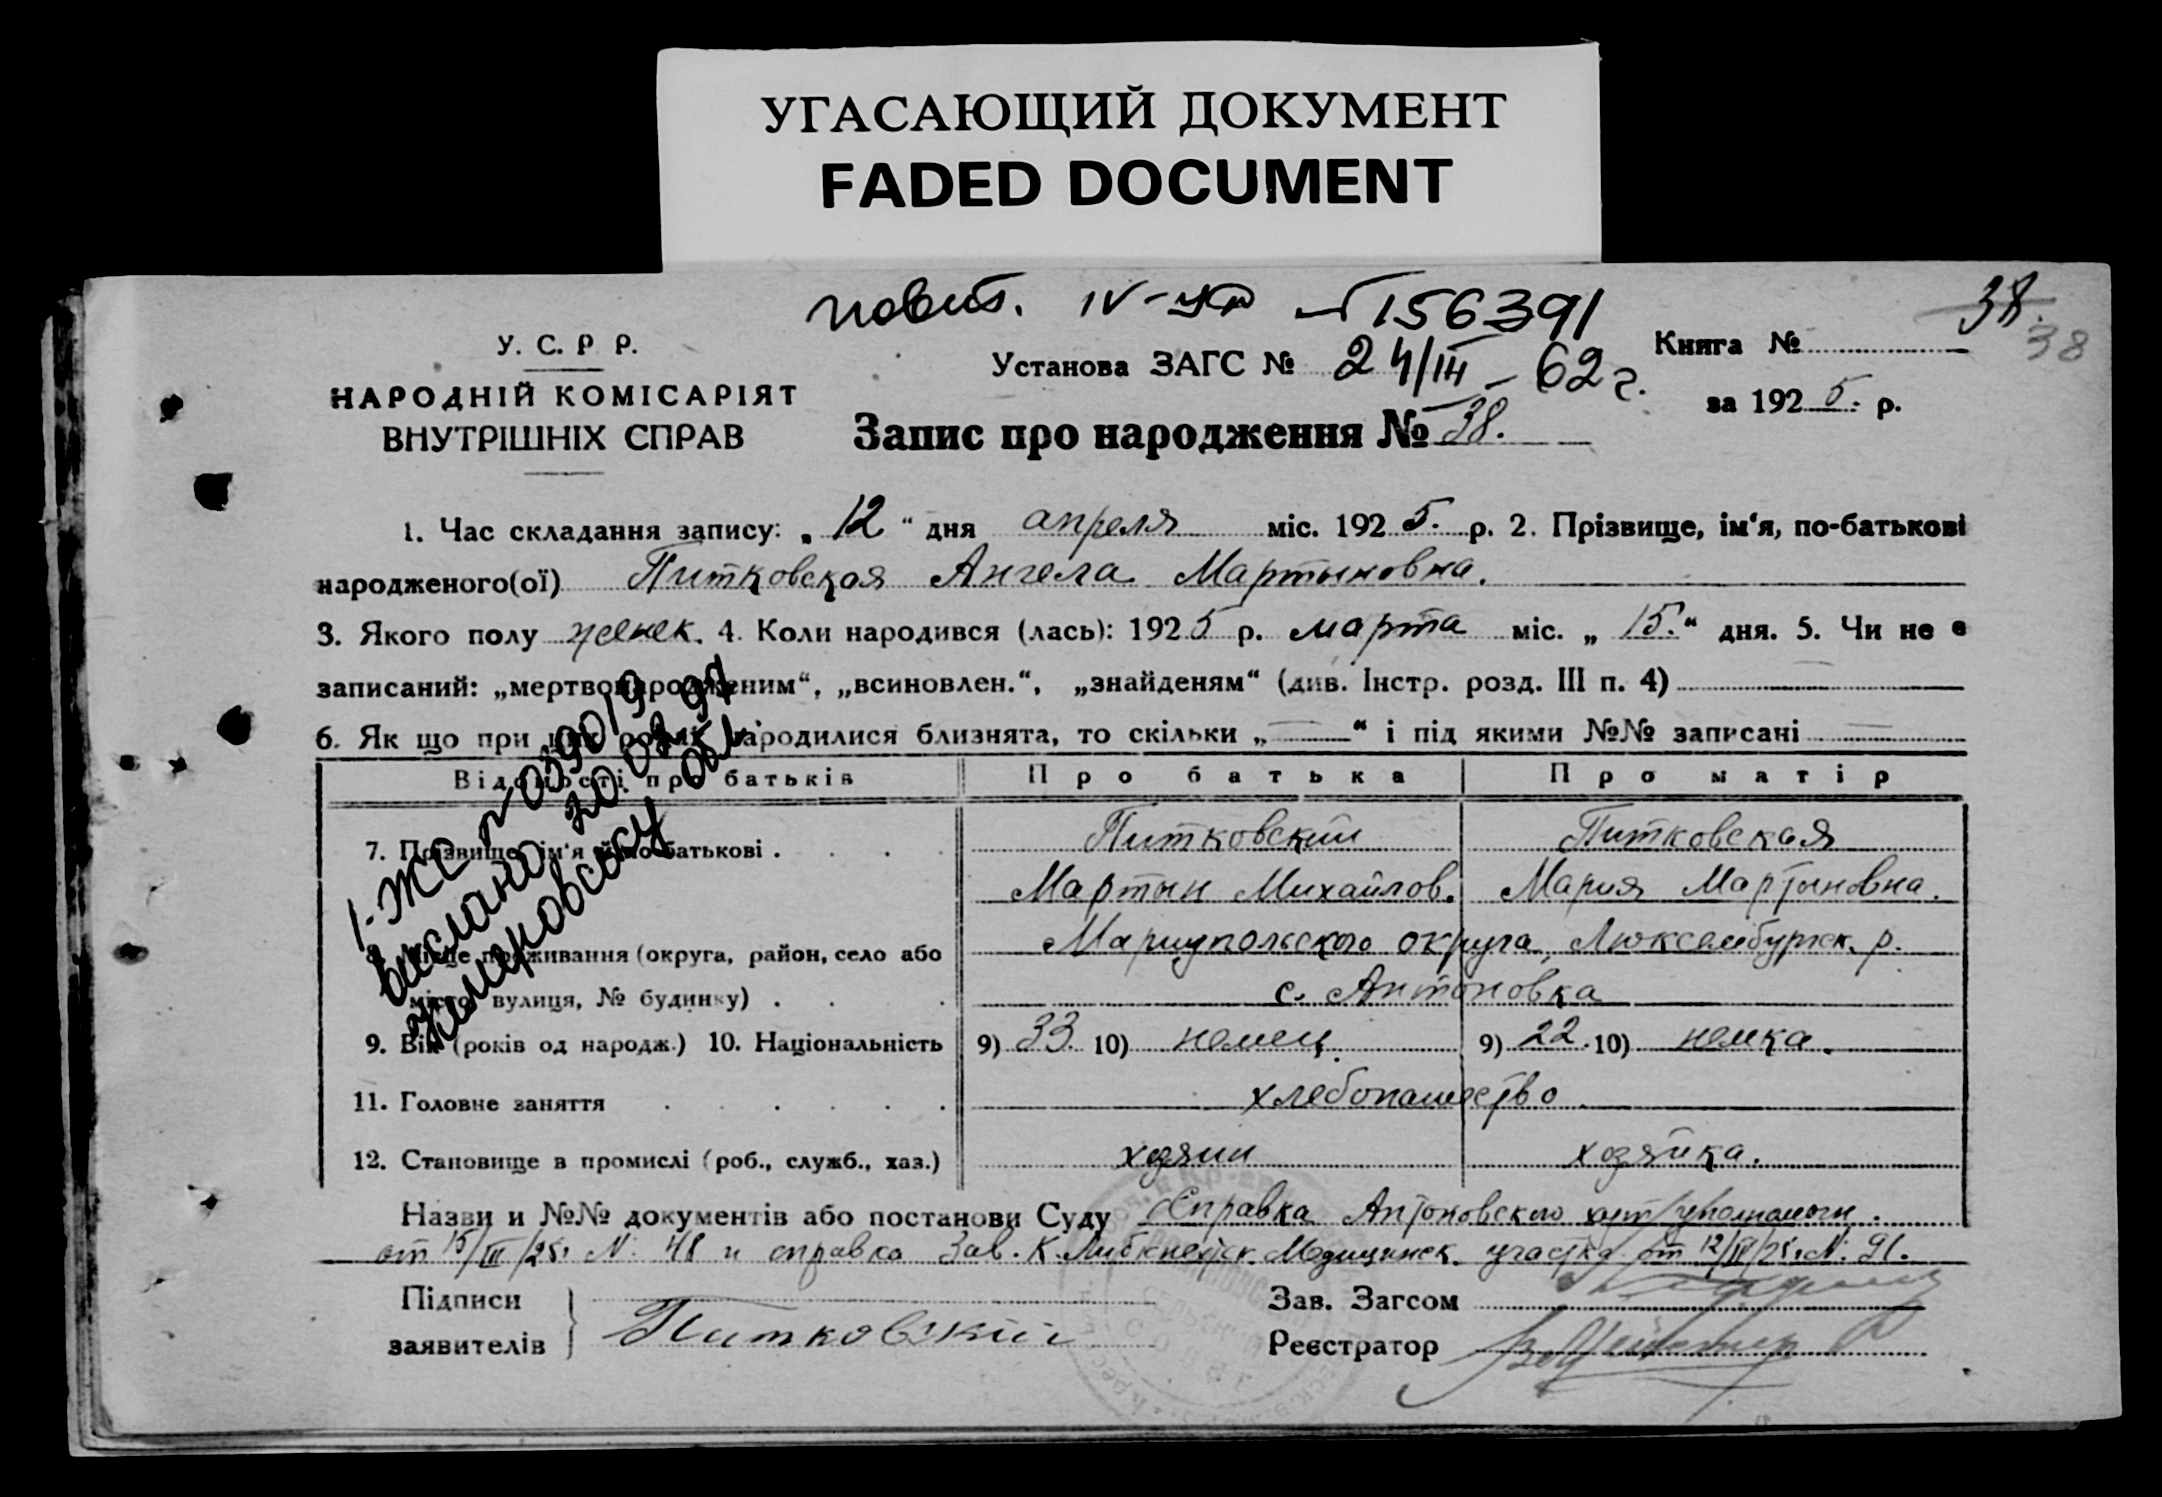 УГАСАЮЩИЙ ДОКУМЕНТ
FADED DOCUMENT
повт. IV-УР 156391
38.
38
У. С. Р Р.
НАРОДНІЙ КОМІСАРІЯТ
ВНУТРІШНІХ СПРАВ
Установа ЗАГС № 24/III - 62 г.
Книга №
за 1925. р.
Запис про народження № 38.
1. Час складання запису: „12“ дня апреля міс. 1925. р. 2. Прізвище, ім‘я, по-батькові
народженого(ої) Питковская Ангела Мартыновна.
3. Якого полу женск. 4. Коли народився (лась): 1925 р. марта міс. „15.“ дня. 5. Чи не є
записаний: „мертвонародженим“, „всиновлен.“, „знайденям“ (див. Інстр. розд. III п. 4)
6. Як що при цих родах народилися близнята, то скільки „—“ і під якими №№ записані
1-ЖС
выслано 20 02 97
Відомості про батьків
Про батька
Про матір
7. Прізвище, ім‘я й по-батькові .
Питковский
Питковская
Мартын Михайлов.
Мария Мартыновна.
8. Місце проживання (округа, район, село або
місто, вулиця, № будинку) .
Мариупольского округа, Люксембургск. р.
с. Антоновка
9. Вік (років од народж.) 10. Національність
9) 33 10) немец.
9) 22. 10) немка.
11. Головне заняття
хлебопашество.
12. Становище в промислі (роб., служб., хаз.)
хозяин
хозяйка.
Назви и №№ документів або постанови Суду Справка Антоновского
от 15/III/25г. N. 48 и справка Зав. К. Либкнехтск. Медицинск. участка от 12/IV/25г. N. 91.
Підписи
заявителів
Питковский
Зав. Загсом
Реєстратор